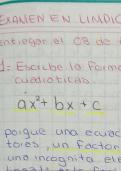 EXAMEN EN LINDIC
entregar el CB de
1= Escribe la forma
cuadiotica.
ax²+bx+c
porque una ecuac
tores, un factor
una incognita, ele